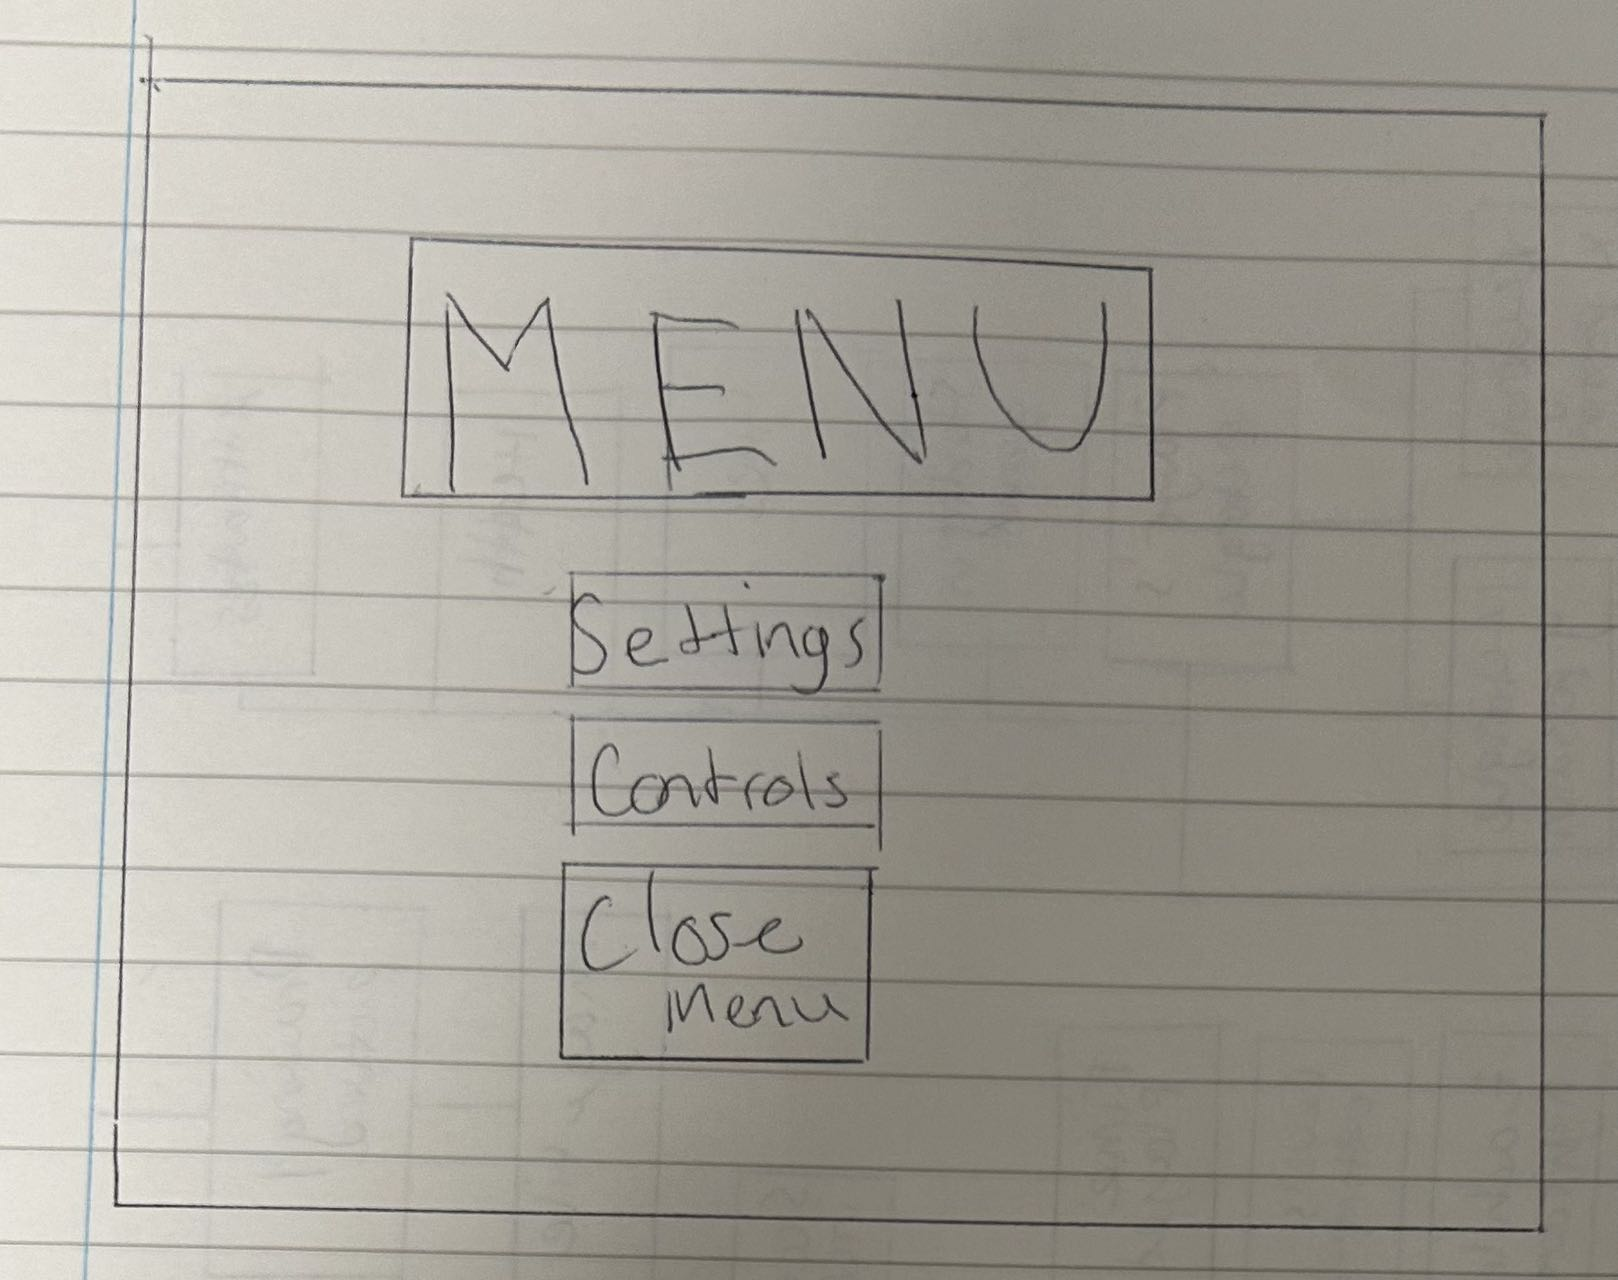 MENU
Settings
Controls
Close
Menu